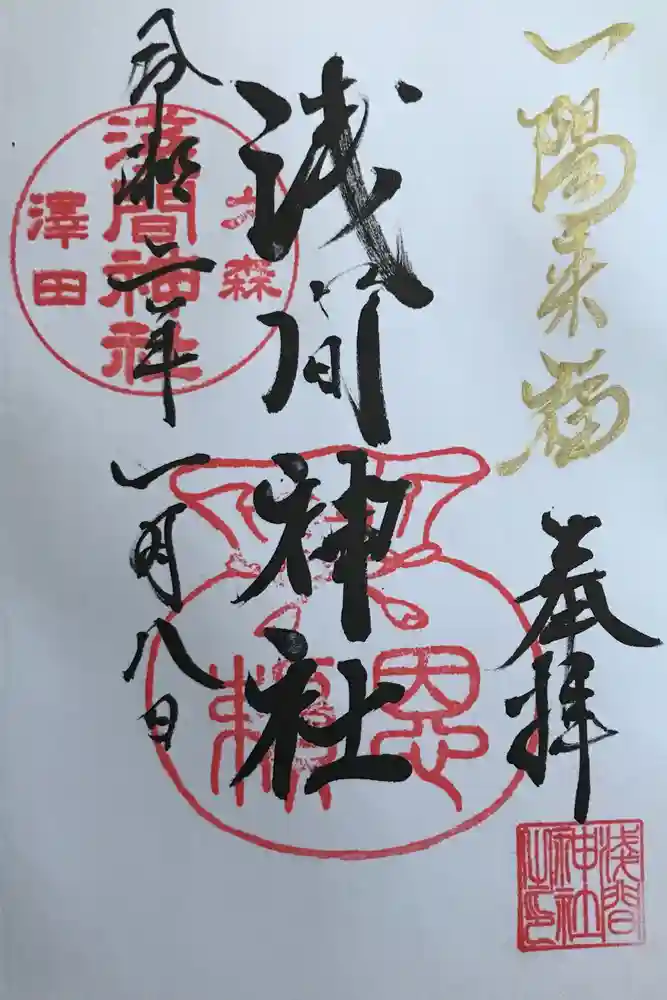 一陽来福
奉拝
浅間神社
令和二年
一月八日
大森
浅間神社
澤田
恩頼
浅間
神社
之印